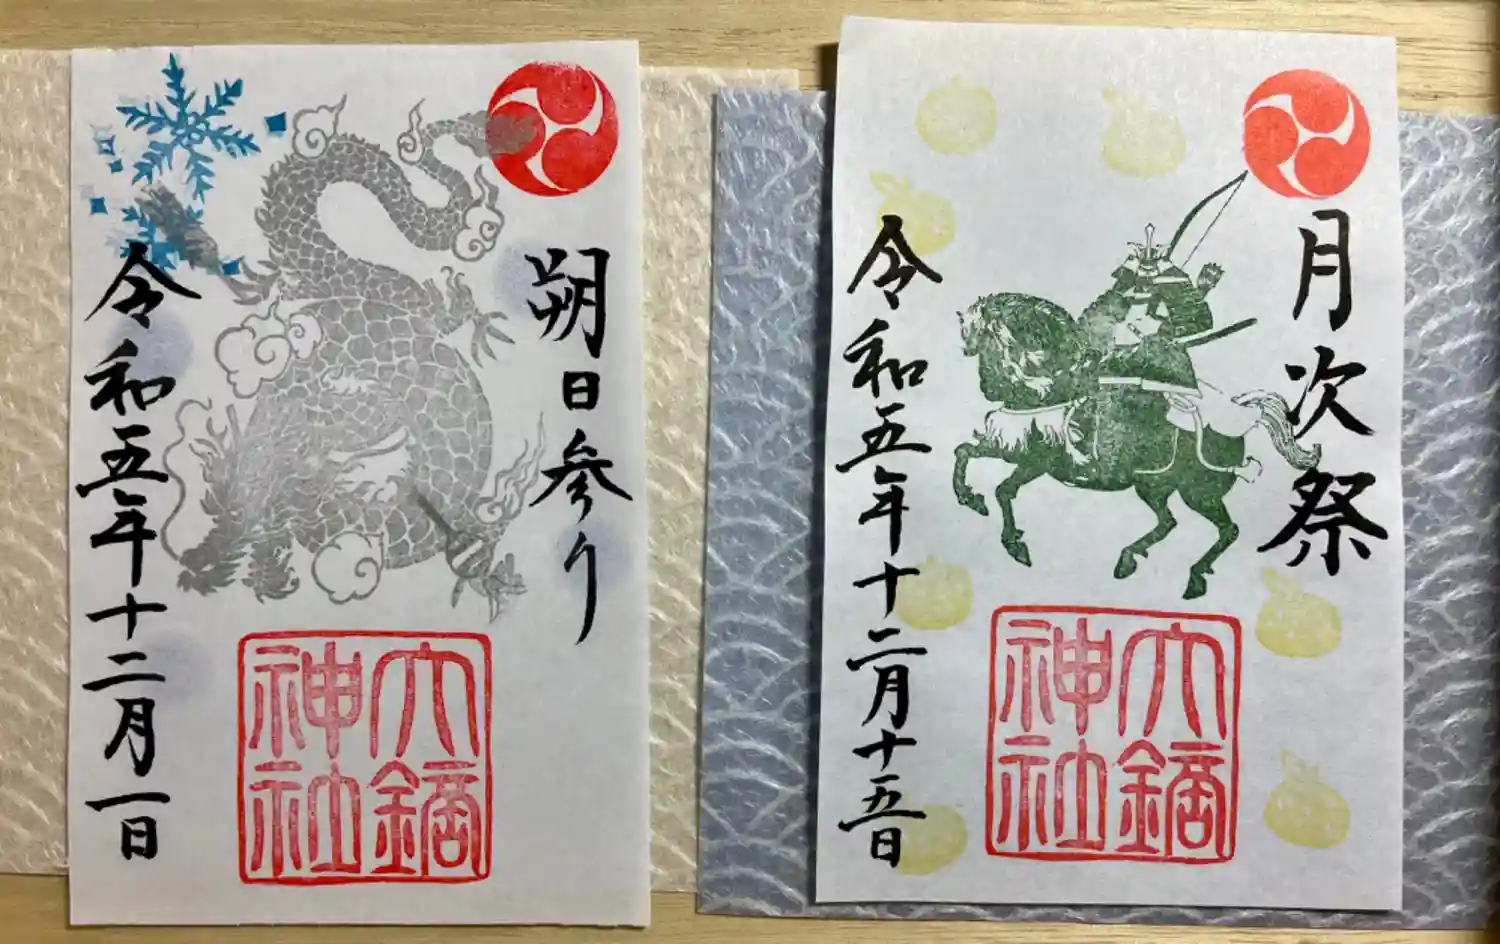 朔日参り
六鏑
神社
令和五年十二月一日
月次祭
六鏑
神社
令和五年十二月十五日